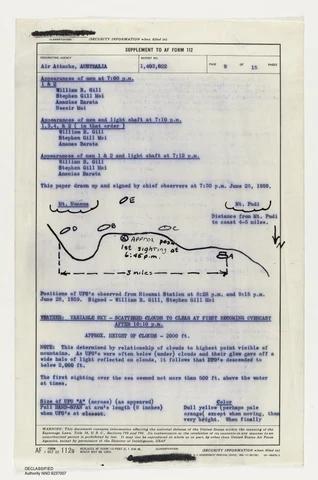 CLASSIFICATION
(SECURITY INFORMATION when filled in)
SUPPLEMENT TO AF FORM 112
ORIGINATING AGENCY
REPORT NO.
Air Attache, AUSTRALIA
1,493,822
PAGE 9 OF 15 PAGES
Appearances of men at 7:00 p.m.
1 & 2
William B. Gill
Stephen Gill Moi
Ananias Barata
Nessir Moi
Appearances of men and light shaft at 7:10 p.m.
1,3,4, & 2 ( in that order )
William B. Gill
Stephen Gill Moi
Ananas Barata
Appearances of men 1 & 2 and light shaft at 7:12 p.m.
William B. Gill
Stephen Gill Moi
Ananias Barata
This paper drawn up and signed by chief observers at 7:30 p.m. June 28, 1959.
Mt. Nuanua
E
Mt. Pudi
Distance from Mt. Pudi
to coast 4-5 miles.
D
B
C
Approx posn
1st sighting at
6:45 p.m.
N
A
3 miles
Positions of UFO's observed from Giwanui Station at 8:28 p.m. and 9:15 p.m.
June 28, 1959. Signed - William B. Gill, Stephen Gill Moi
WEATHER: VARIABLE SKY - SCATTERED CLOUDS TO CLEAR AT FIRST BECOMING OVERCAST
AFTER 10:10 p.m.
APPROX. HEIGHT OF CLOUDS - 2000 ft.
NOTE: This determined by relationship of clouds to highest point visible of
mountains. As UFO's were often below (under) clouds and their glow gave off a
wide halo of light reflected on clouds, it follows that UFO's descended to
below 2,000 ft.
The first sighting over the sea seemed not more than 500 ft. above the water
at times.
Size of UFO "A" (across) (as appeared)
Color
Full HAND-SPAN at arm's length (8 inches)
Dull yellow (perhaps pale
when UFO's at closest.
orange) except when moving, then
very bright. When finally
WARNING: This document contains information affecting the national defense of the United States within the meaning of the
Espionage Laws, Title 18, U. S. C., Sections 793 and 794. Its transmission or the revelation of its contents in any manner to an
unauthorized person is prohibited by law. It may not be reproduced in whole or in part, by other than United States Air Force
Agencies, except by permission of the Director of Intelligence, USAF.
AF FORM 112a
(SECURITY INFORMATION when filled in)
DECLASSIFIED
Authority NND 8237007